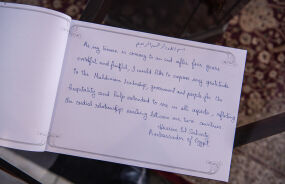 بسم الله الرحمن الرحيم
As my tenure is coming to an end after four years
eventful and fruitful, I would like to express my gratitude
to the Maldivian leadership, government and people for the
hospitality and help extended to me in all aspects, reflecting
the cordial relationships existing between our two countries
Ambassador of Egypt